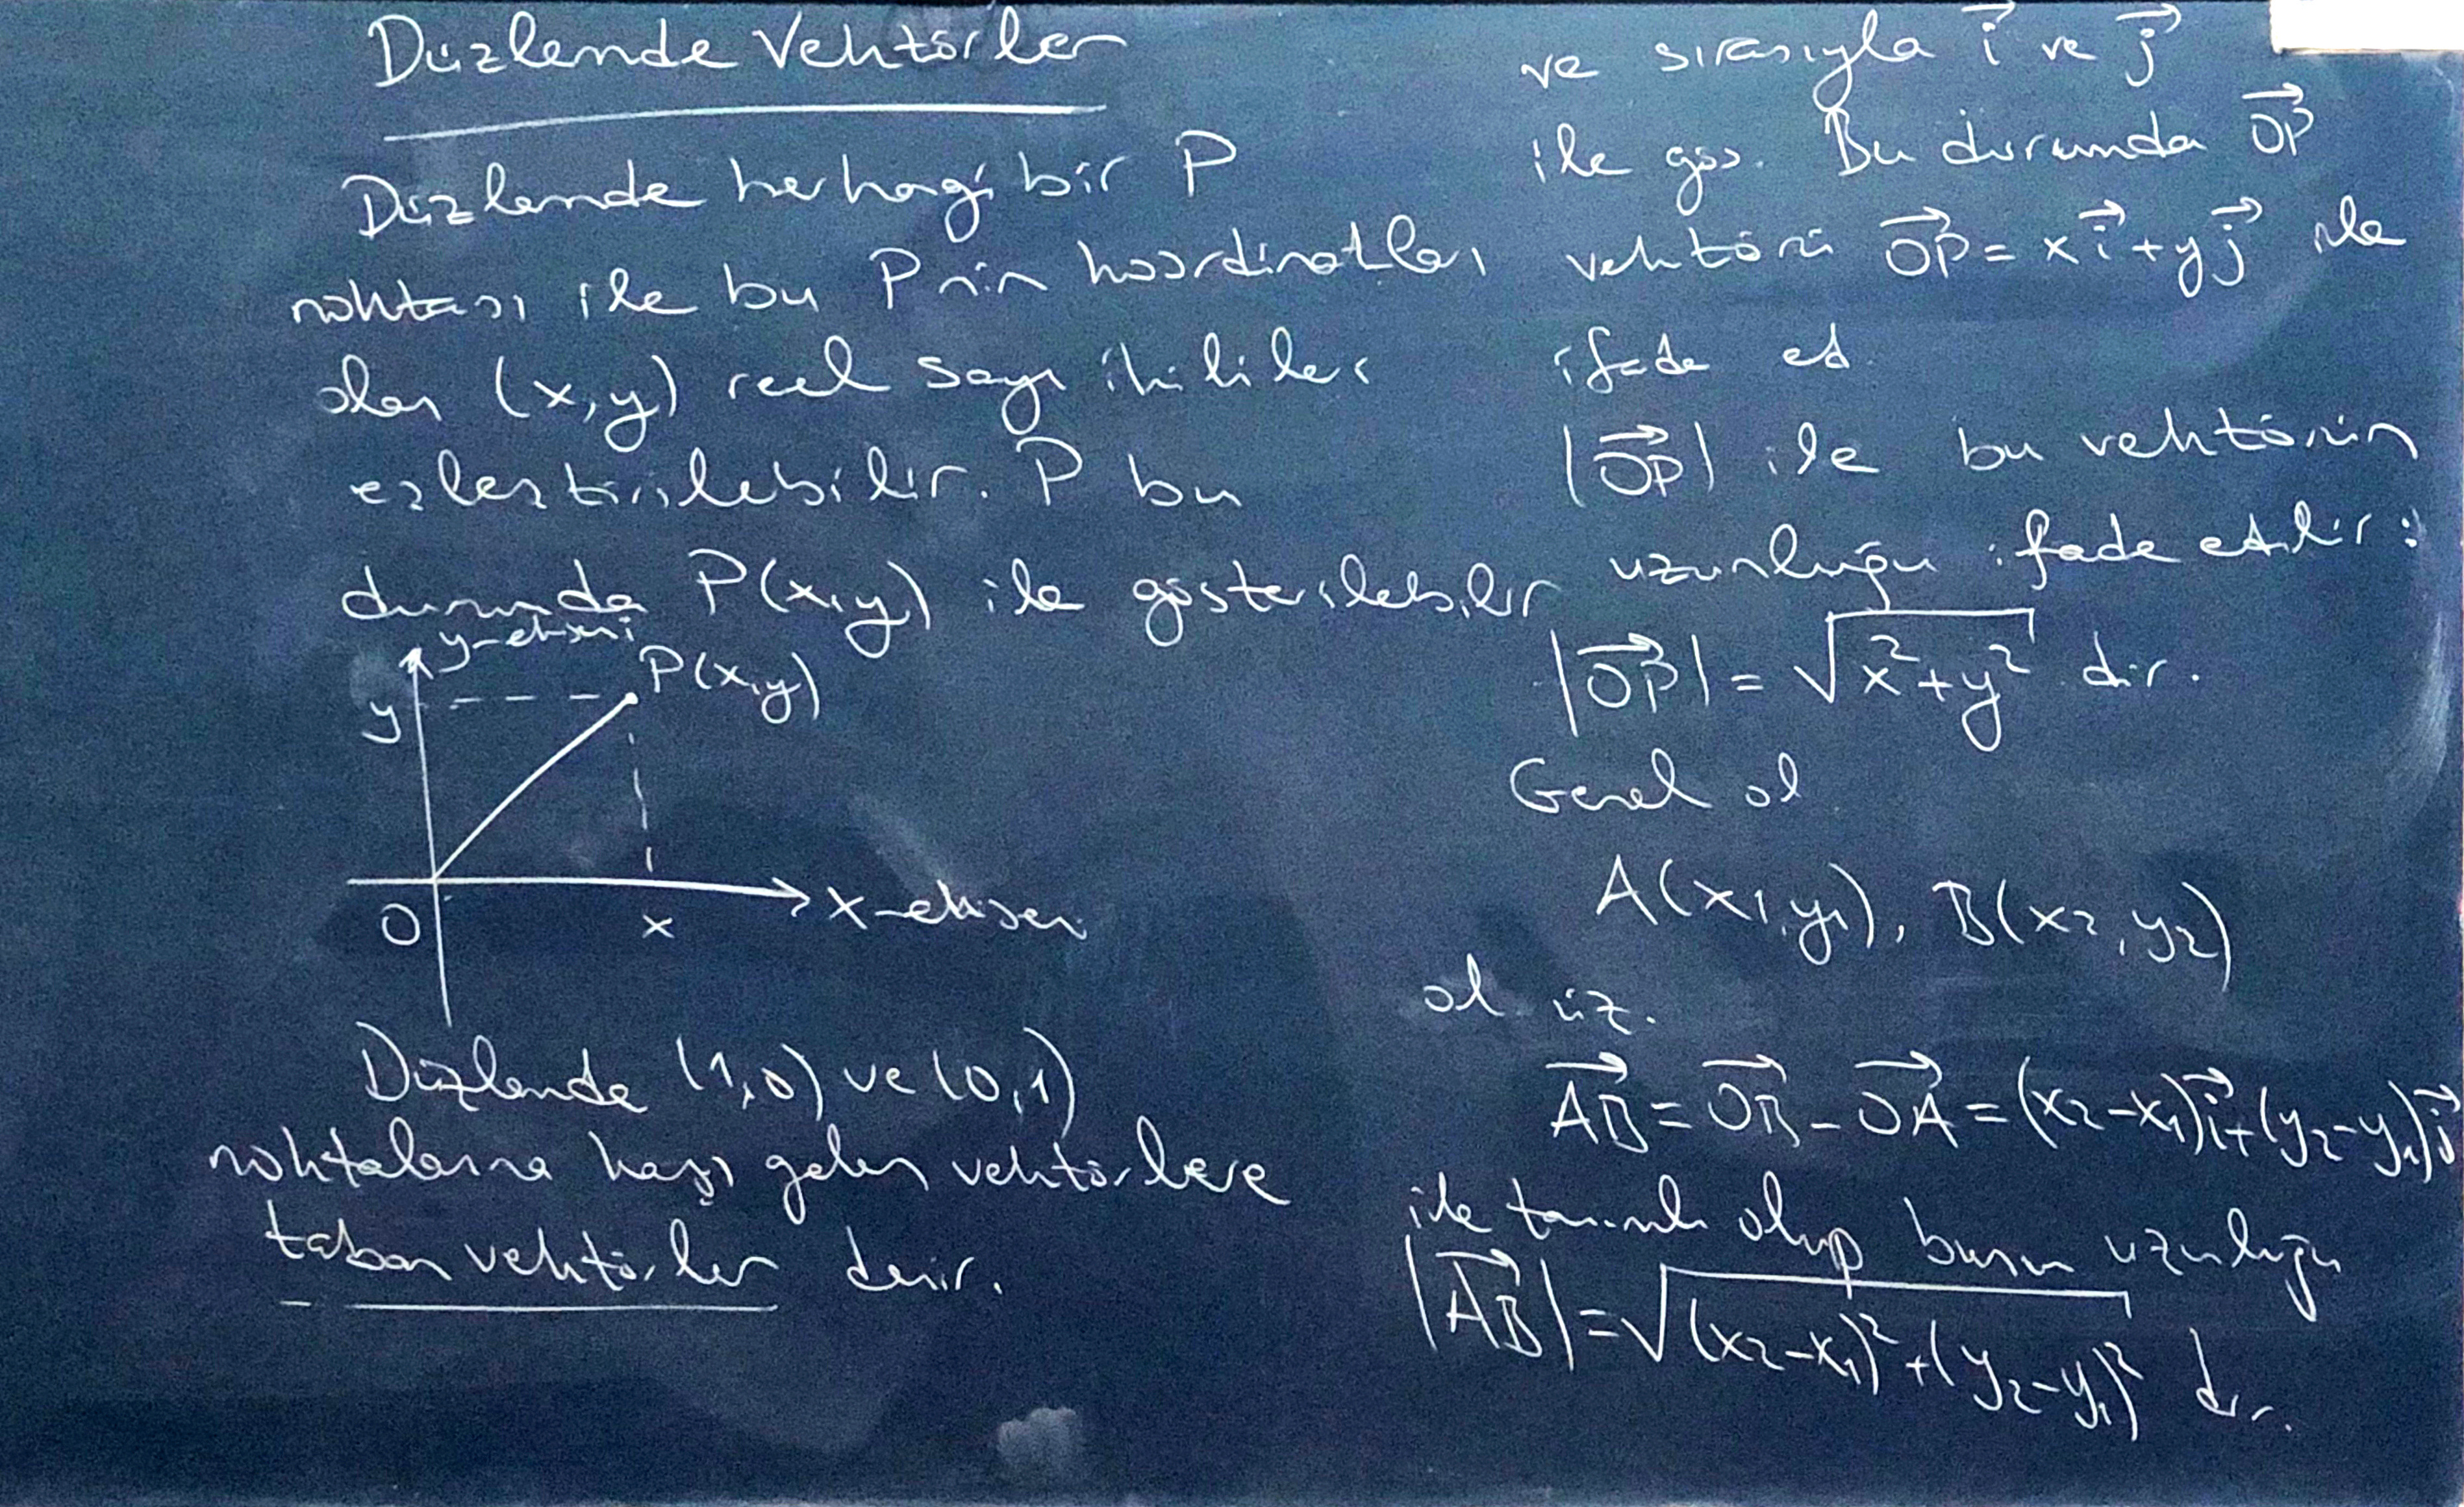 Düzlemde Vektörler
Düzlemde herhangi bir P
noktası ile bu P nin koordinatları
olan (x,y) reel sayı ikilileri
eşleştirilebilir. P bu
durumda P(x,y) ile gösterilebilir
y-ekseni
P(x,y)
y
O
x
x-ekseni
Düzlemde (1,0) ve (0,1)
noktalarına karşı gelen vektörlere
taban vektörler denir.
ve sırasıyla i⃗ ve j⃗
ile gös. Bu durumda OP⃗
vektörü OP⃗ = x i⃗ + y j⃗ ile
ifade ed.
|OP⃗| ile bu vektörün
uzunluğu ifade edilir:
|OP⃗| = √(x²+y²) dir.
Genel ol
A(x₁,y₁), B(x₂,y₂)
ol üz.
AB⃗ = OB⃗ - OA⃗ = (x₂-x₁)i⃗+(y₂-y₁)j⃗
ile tanımlı olup bunun uzunluğu
|AB⃗| = √((x₂-x₁)²+(y₂-y₁)²) dır.